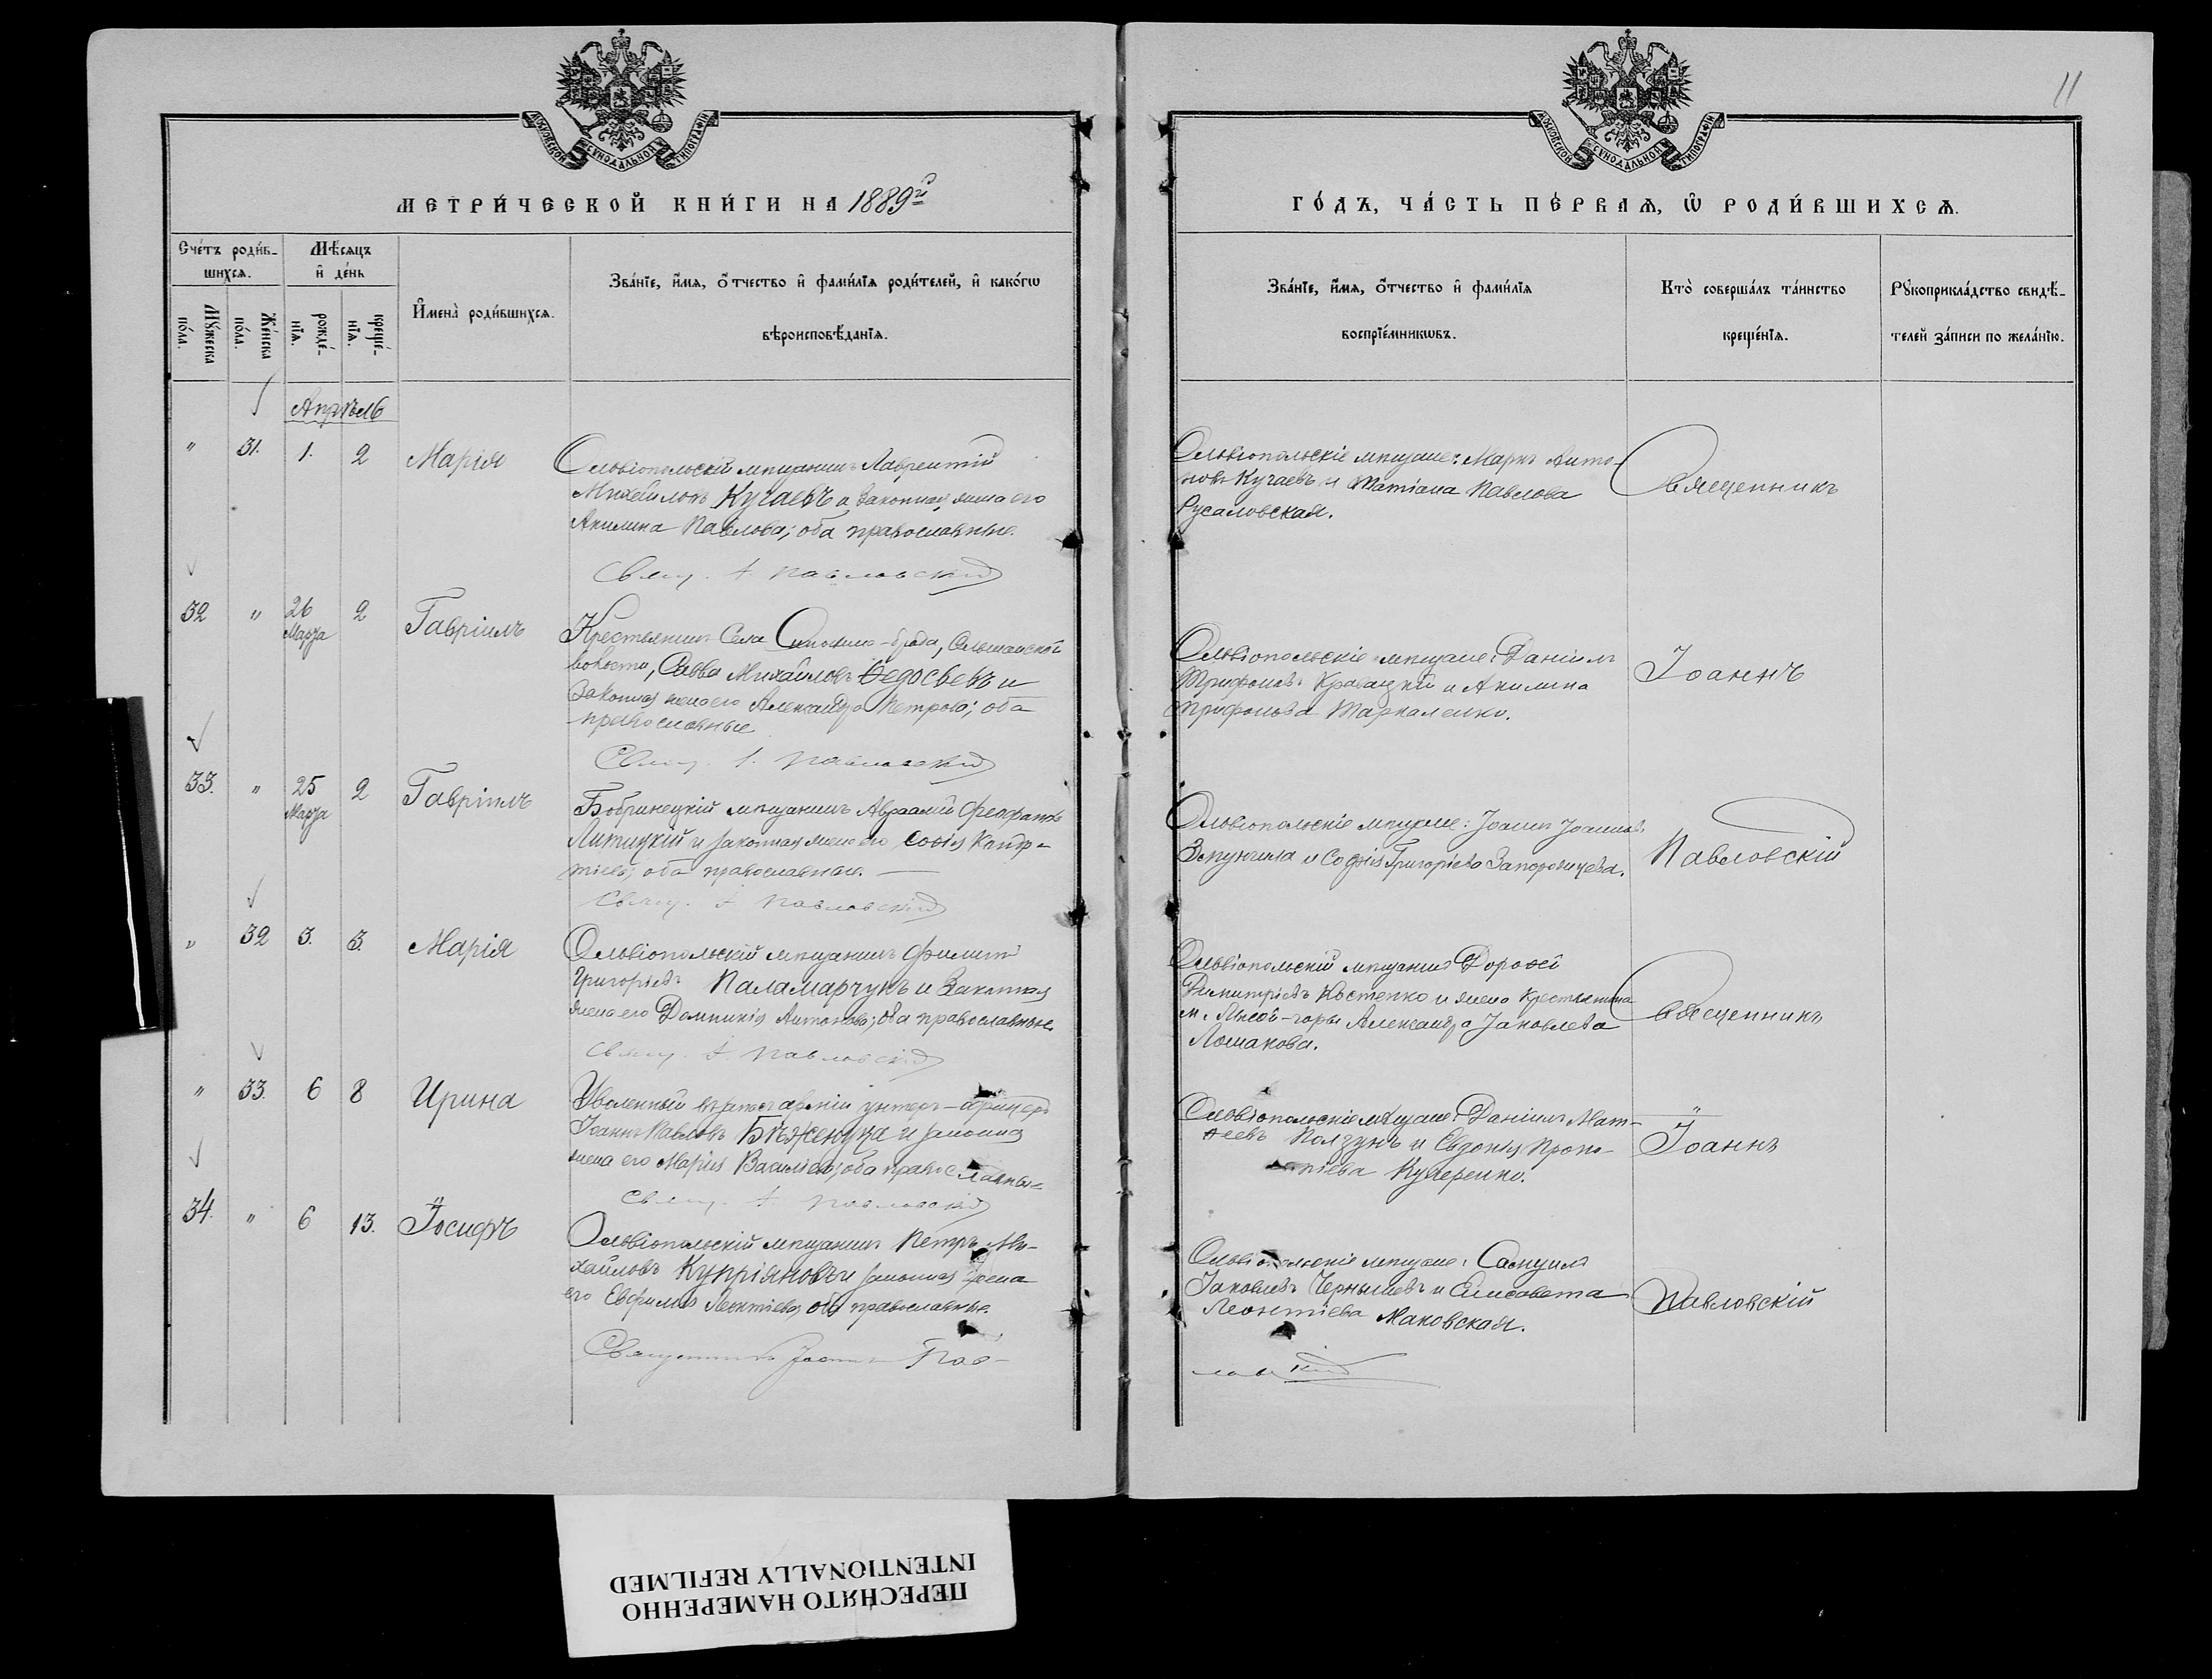 11
МОСКОВСКОЙ СУНОДАЛЬНОЙ ТИПОГРАФІИ
МОСКОВСКОЙ СУНОДАЛЬНОЙ ТИПОГРАФІИ
МЕТРИ́ЧЕСКОЙ КНИ́ГИ НА 1889й
ГО́ДЪ, ЧА́СТЬ ПЕ́РВАѦ, Ѡ РОДИ́ВШИХСѦ.
Сче́тъ роди́в-
шихсѧ.
Мꙋ́жеска
по́ла.
Же́нска
по́ла.
Мѣ́сѧцъ
и҆ де́нь
рожде́-
нїѧ.
креще́-
нїѧ.
И҆мена̀ роди́вшихсѧ.
Зва́нїе, и҆́мѧ, ѻ҆́тчество и҆ фами́лїѧ роди́телей, и҆ како́гѡ
вѣроисповѣ́данїѧ.
Зва́нїе, и҆́мѧ, ѻ҆́тчество и҆ фами́лїѧ
воспрїе́мникѡвъ.
Кто̀ соверша́лъ та́инство
креще́нїѧ.
Рꙋкоприкла́дство свидѣ́-
телей за́писи по жела́нїю.
Апрѣль
" 31. 1. 2 Марія
Ольвіопольскій мѣщанинъ Лаврентій
Михайловъ Кучаевъ и законная жена его
Акилина Павлова; оба православные.
Ольвіопольскіе мѣщане: Маркъ Анто-
новъ Кучаевъ и Татіана Павлова
Русаловская.
Священникъ
Свящ. І. Павловскій
32 " 26 Марта 2 Гавріилъ
Крестьянинъ Села -брода, Ольшанской
волости, Савва Михайловъ Ѳедосѣевъ и
законная жена его Александра Петрова; оба
православные
Ольвіопольскіе мѣщане: Даніилъ
Трифоновъ Кравацкій и Акилина
Трифонова
Іоаннъ
Свящ. І. Павловскій
33. " 25 Марта 2 Гавріилъ
Бобринецкій мѣщанинъ Авраамій Феофановъ
и законная жена его Софія Кондра-
тіева; оба православные.
Ольвіопольскіе мѣщане: Іоаннъ Іоанновъ
и Софія Григоріева
Павловскій
Свящ. І. Павловскій
" 32 3. 3. Марія
Ольвіопольскій мѣщанинъ Филиппъ
Григоріевъ Паламарчукъ и Законная
жена его Домникія Антонова; оба православные.
Ольвіопольскій мѣщанинъ Дороѳей
Димитріевъ Костенко и жена крестьянина
м. Лысой-горы Александра Іаковлева
Лошакова.
Священникъ
Свящ. І. Павловскій
" 33. 6 8 Ирина
Уволенный въ запасъ арміи унтеръ-офицеръ
Іоаннъ Павловъ и законная
жена его Марія Васильева; оба православные
Ольвіопольскіе мѣщане: Даніилъ Мат-
ѳеевъ Ползунъ и Евдокія Проко-
піева Кучеренко.
"
Іоаннъ
Свящ. І. Павловскій
34. " 6 13. Іосифъ
Ольвіопольскій мѣщанинъ Петръ Ми-
хайловъ Купріяновъ и законная жена
его Евфимія Леонтіева, оба православные.
Ольвіопольскіе мѣщане: Самуилъ
Іаковлевъ Чернышевъ и Елисавета
Леонтіева Маковская.
Павловскій
Священникъ Іоаннъ Пав-
ловскій
ПЕРЕСНЯТО НАМЕРЕННО
INTENTIONALLY REFILMED